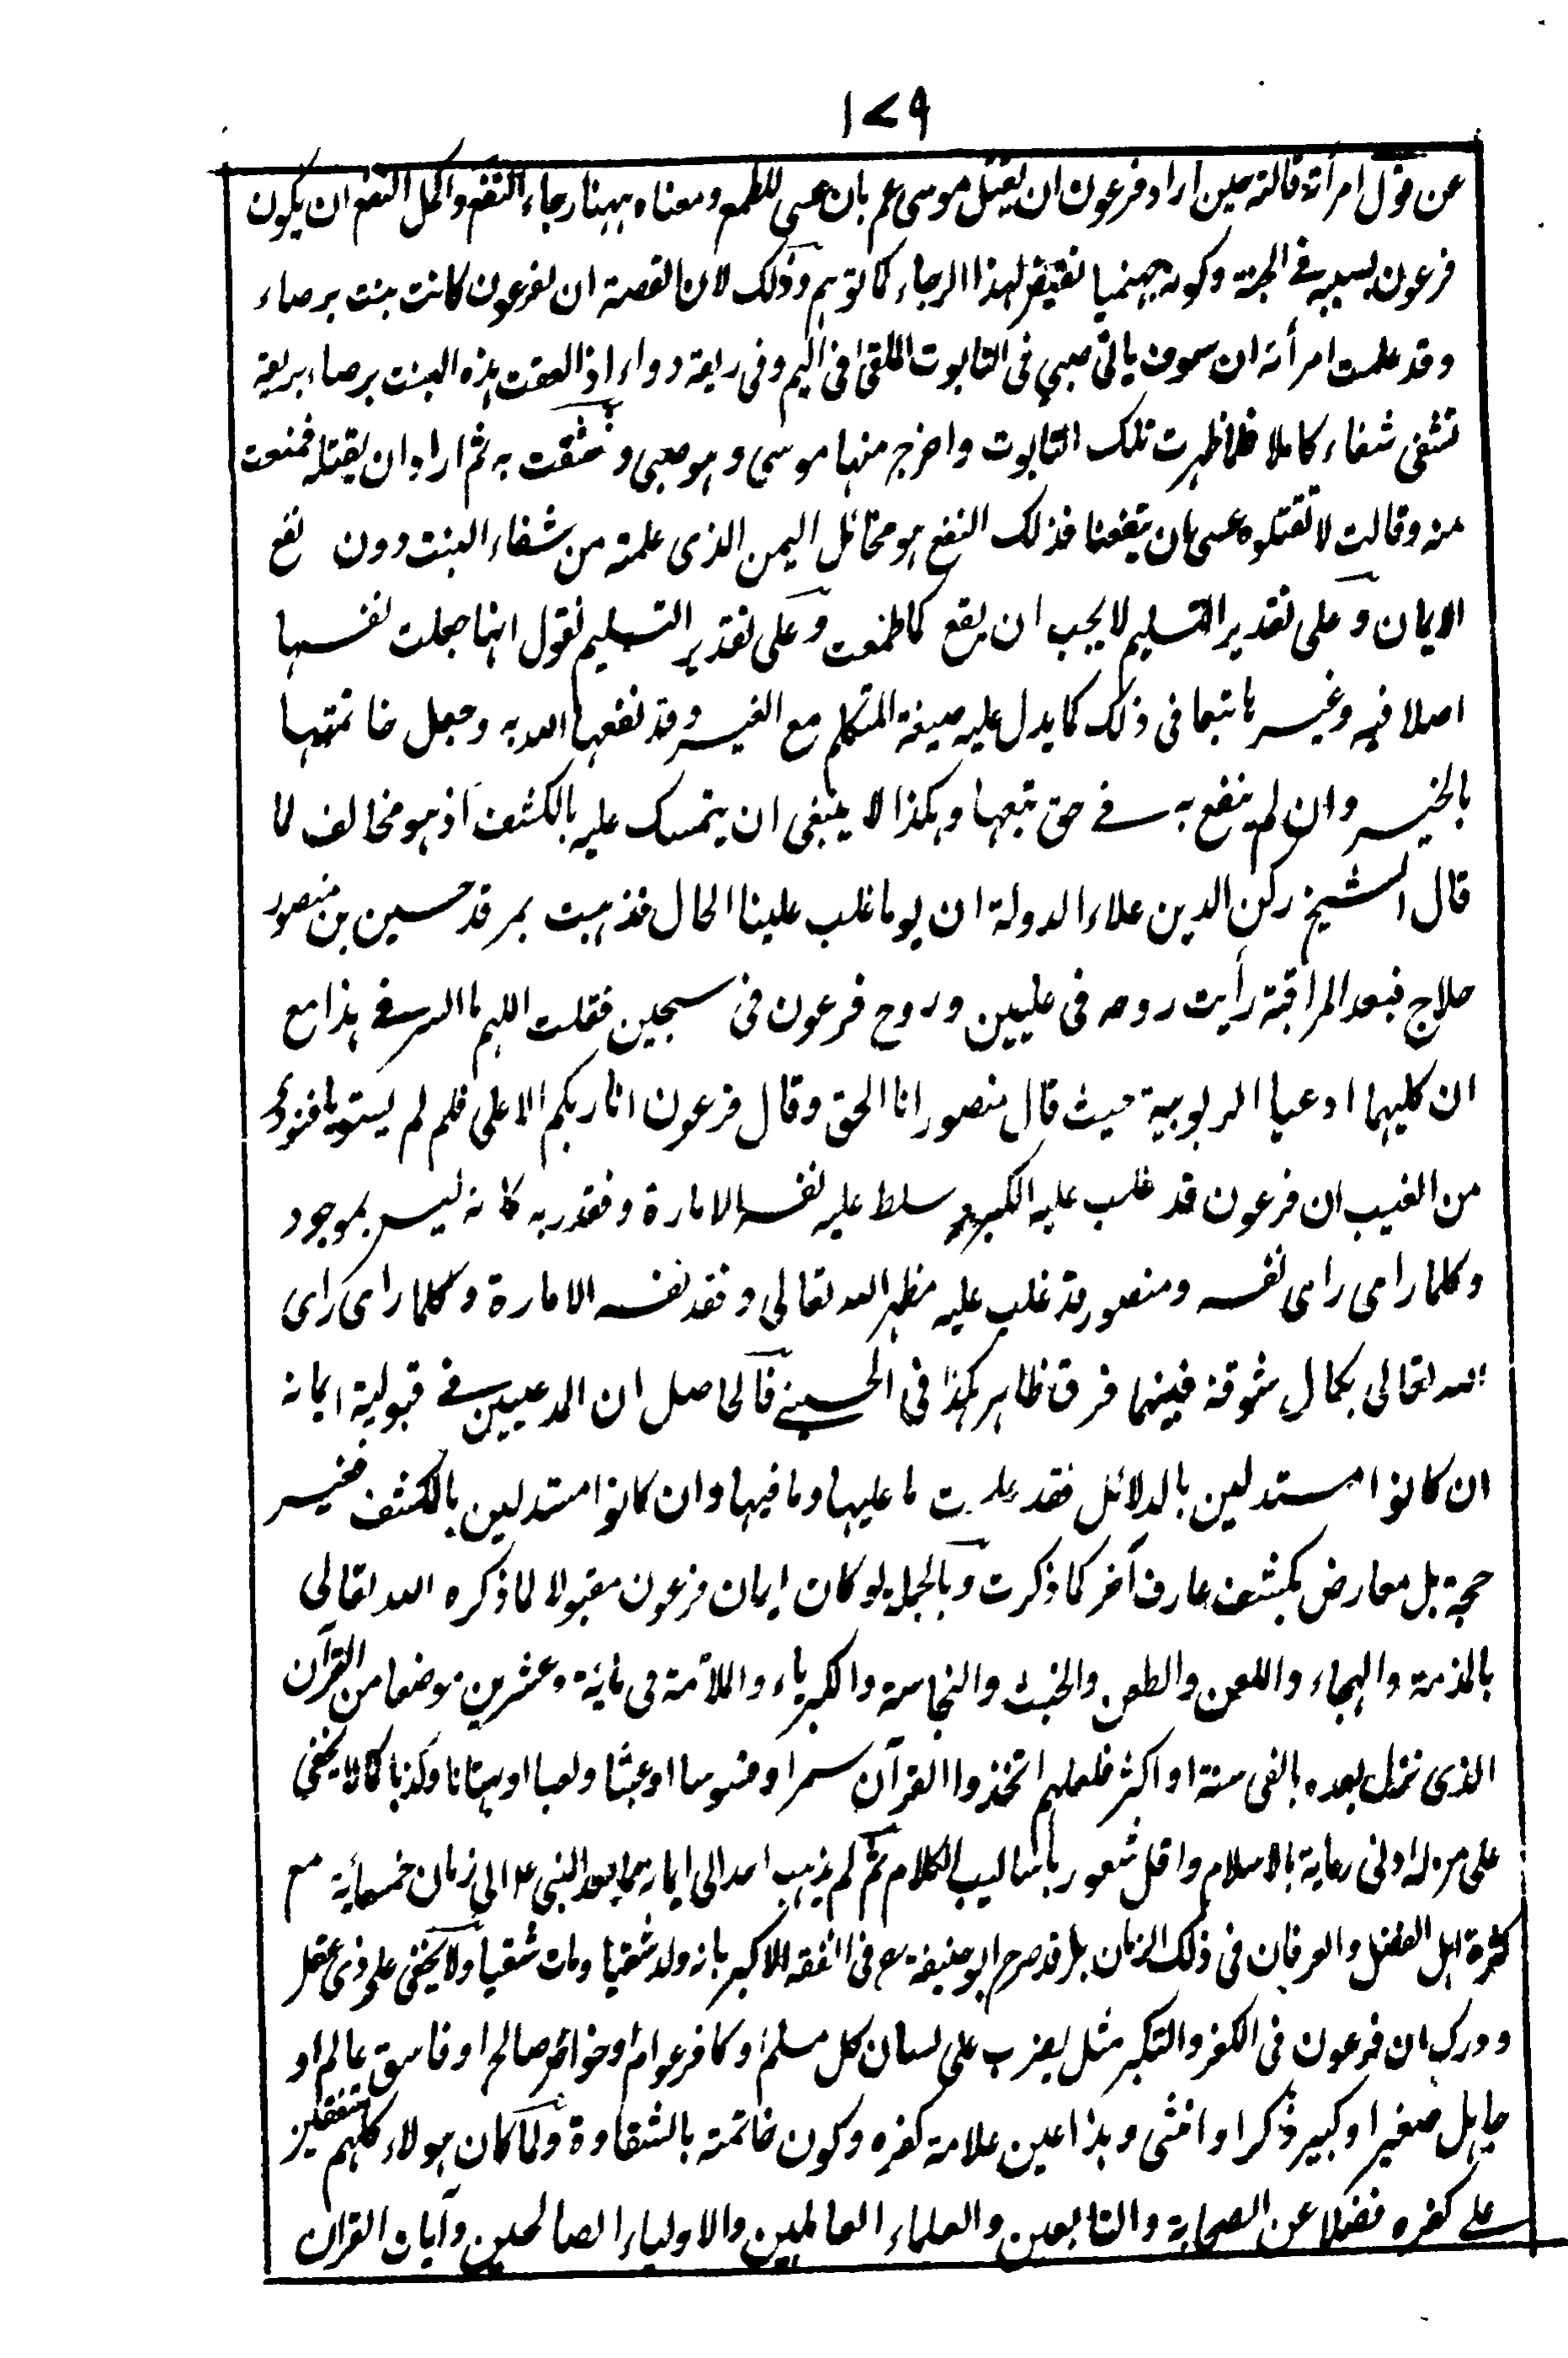 ۱۷۹
عن قول امرأته قالته حين اراد فرعون ان يقتل موسى عم بان عسى للطمع ومعناه ههنا رجاء النفع واكمل النفع ان يكون
فرعون بسببه فى الجنة وكونه جهنميا نقيض لهذا الرجاء كما توهم وذلك لان القصة ان لفرعون كانت بنت برصاء
وقد علمت امرأته ان سوف ياتى صبي فى التابوت الملقى فى اليم وفى ريقه دواء اذا لعقت هذه البنت برصاء بريقه
تشفى شفاء كاملا فلما ظهرت تلك التابوت واخرج منها موسى وهو صبى و عشقت به ثم اراد ان يقتله فمنعت
منه وقالت لا تقتلوه عسى ان ينفعنا فذلك النفع هو مخائل اليمن الذى علمته من شفاء البنت دون نفع
الايمان وعلى تقدير التسليم لا يجب ان يقع كما طمعت وعلى تقدير التسليم نقول انها جعلت نفسها
اصلا فيه وغيرها تبعا فى ذلك كما يدل عليه صيغة المتكلم مع الغير وقد نفعها الله به وجعل خاتمتها
بالخير وان لم ينفع به فى حق تبعها وهكذا لا ينبغى ان يتمسك عليه بالكشف اذ هو مخالف لما
قال الشيخ ركن الدين علاء الدولة ان يوما غلب علينا الحال فذهبت بمرقد حسين بن منصور
حلاج فبعد المراقبة رأيت روحه فى عليين وروح فرعون فى سجين فقلت اللهم ما السر فى هذا مع
ان كليهما ادعيا الربوبية حيث قال منصور انا الحق وقال فرعون انا ربكم الاعلى فلم لم يستويا فنودى
من الغيب ان فرعون قد غلب عليه الكبر و سلط عليه نفسه الامارة وفقد ربه كانه ليس بموجود
وكلما راى راى نفسه ومنصور قد غلب عليه مظهر الله تعالى وفقد نفسه الامارة وكلما راى راى
الله تعالى بكمال شوقه فبينهما فرق ظاهر هكذا فى الحسينى فالحاصل ان المدعيين فى قبولية ايمانه
ان كانوا مستدلين بالدلائل فقد علمت ما عليها وما فيها وان كانوا مستدلين بالكشف فغير
حجة بل معارض بكشف عارف آخر كما ذكرت وبالجملة لو كان ايمان فرعون مقبولا لما ذكره الله تعالى
بالمذمة والهجاء واللعن والطعن والخبث والنجاسة والكبرياء والملأمة فى مائة وعشرين موضعا من القرآن
الذى نزل بعده بالفى سنة او اكثر فلعلهم اتخذوا القرآن سمرا و فسوسا او عبثا ولعبا او بهتانا وكذبا كما لا يخفى
على من له ادنى رعاية بالاسلام واقل شعور باساليب الكلام ثم لم يذهب احد الى ايمانه مما بعد النبى عم الى زمان خمسمأية مع
كثرة اهل الفضل والعرفان فى ذلك الزمان بل قد صرح ابو حنيفة رح فى الفقه الاكبر بانه ولد شقيا ومات شقيا ولا يخفى على ذى عقل
ودرك ان فرعون فى الكفر والتكبر مثل يضرب على لسان كل مسلم او كافر عوام او خواص صالح او فاسق عالم او
جاهل صغير او كبير ذكر او انثى وهذا عين علامة كفره وكون خاتمته بالشقاوة ولما كان هولاء كلهم متفقين
على كفره فضلا عن الصحابة والتابعين والعلماء العالمين والاولياء الصالحين وآيات القران